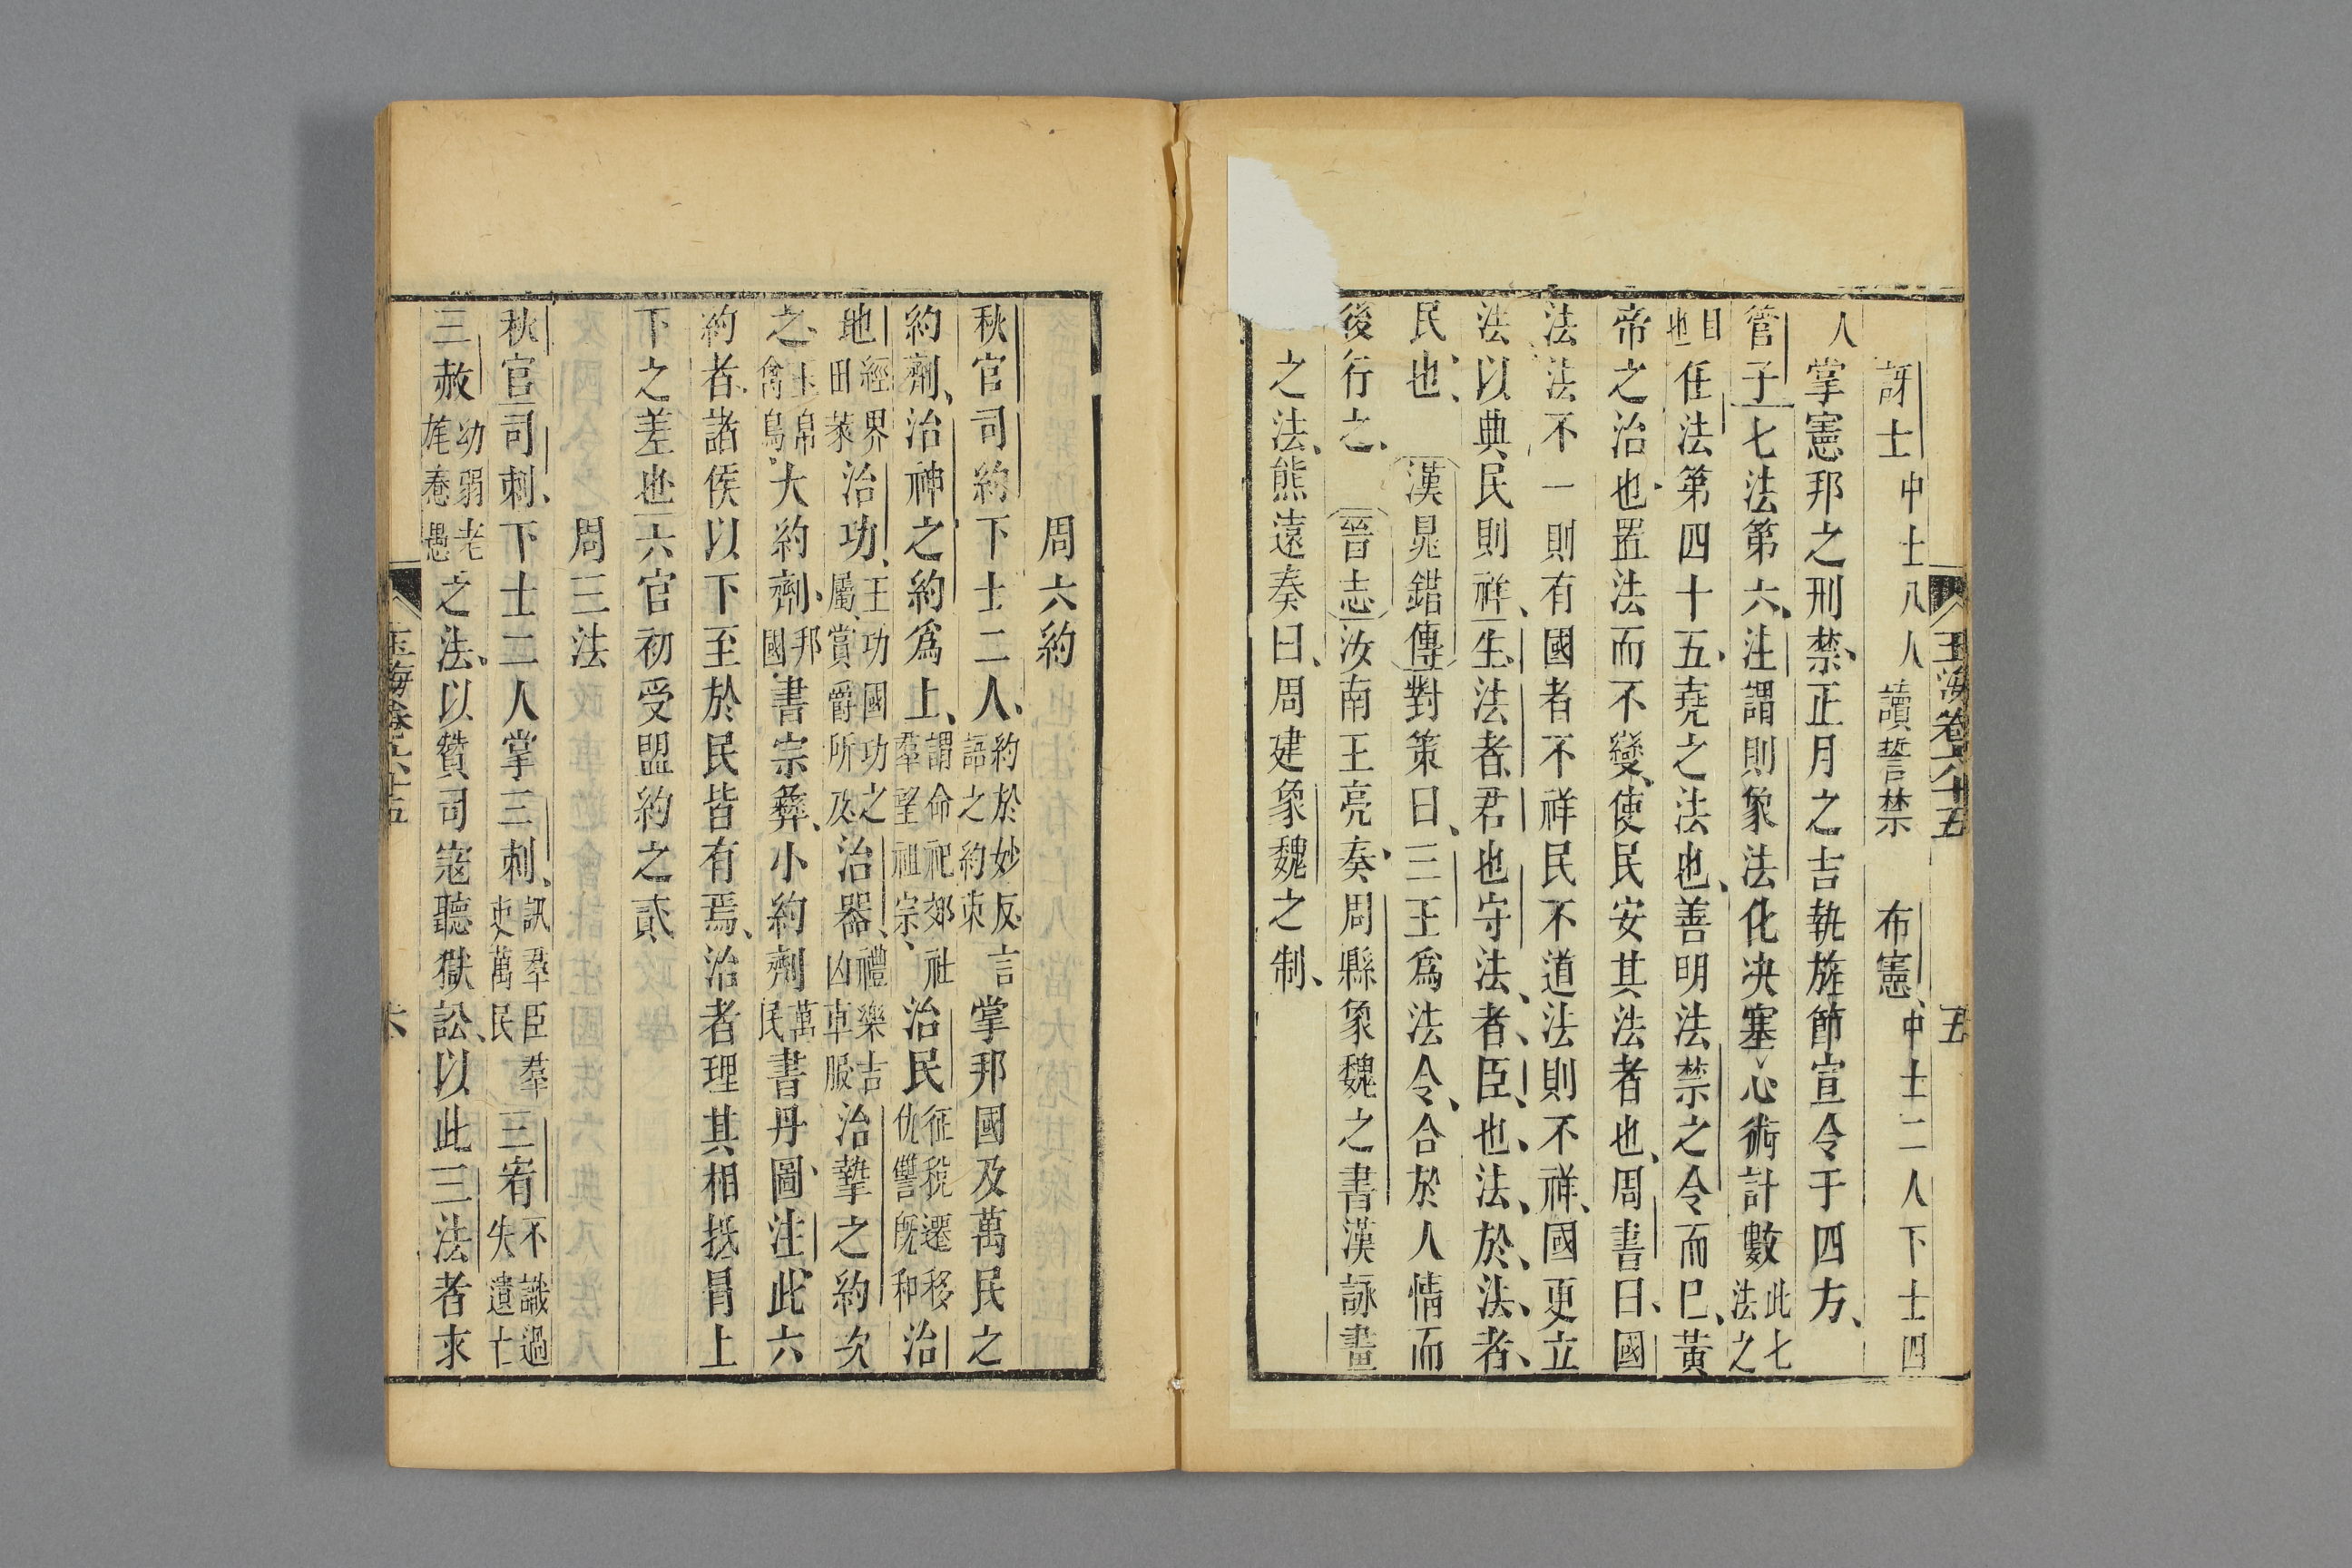 玉海卷六十五 五
訝士中士八人讀誓禁 布憲中士二人下士四
人掌憲邦之刑禁正月之吉執旌節宣令于四方
管子七法第六注謂則象法化決塞心術計數此七法之
目也任法第四十五堯之法也善明法禁之令而已黃
帝之治也置法而不變使民安其法者也周書曰國
法法不一則有國者不祥民不道法則不祥國更立
法以典民則祥生法者君也守法者臣也法於法者
民也 漢晁錯傳對策曰三王為法令合於人情而
後行之 晉志汝南王亮奏周縣象魏之書漢詠畫
之法熊遠奏曰周建象魏之制
周六約
秋官司約下士二人約於妙反言語之約束掌邦國及萬民之
約劑治神之約爲上謂命祀郊社羣望祖宗治民征稅遷移仇讐既和治
地經界田萊治功王功國功之屬賞爵所及治器禮樂吉凶車服治摯之約次
之玉帛禽鳥大約劑邦國書宗彝小約劑萬民書丹圖注此六
約者諸侯以下至於民皆有焉治者理其相抵冒上
下之差也六官初受盟約之貳
周三法
秋官司刺下士二人掌三刺訊羣臣羣吏萬民三宥不識過失遺亡
三赦幼弱老旄惷愚之法以贊司寇聽獄訟以此三法者求
玉海卷六十五 六